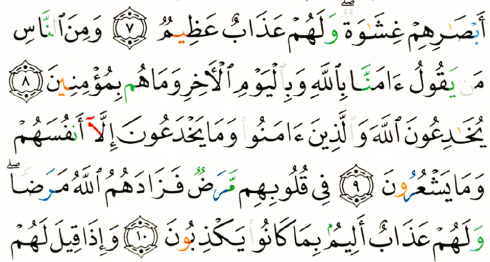 أَبْصَٰرِهِمْ غِشَٰوَةٌ ۖ وَلَهُمْ عَذَابٌ عَظِيمٌ ٧ وَمِنَ ٱلنَّاسِ
مَن يَقُولُ ءَامَنَّا بِٱللَّهِ وَبِٱلْيَوْمِ ٱلْأَخِرِ وَمَا هُم بِمُؤْمِنِينَ ٨
يُخَٰدِعُونَ ٱللَّهَ وَٱلَّذِينَ ءَامَنُوا۟ وَمَا يَخْدَعُونَ إِلَّآ أَنفُسَهُمْ
وَمَا يَشْعُرُونَ ٩ فِى قُلُوبِهِم مَّرَضٌ فَزَادَهُمُ ٱللَّهُ مَرَضًا ۖ
وَلَهُمْ عَذَابٌ أَلِيمٌۢ بِمَا كَانُوا۟ يَكْذِبُونَ ١٠ وَإِذَا قِيلَ لَهُمْ